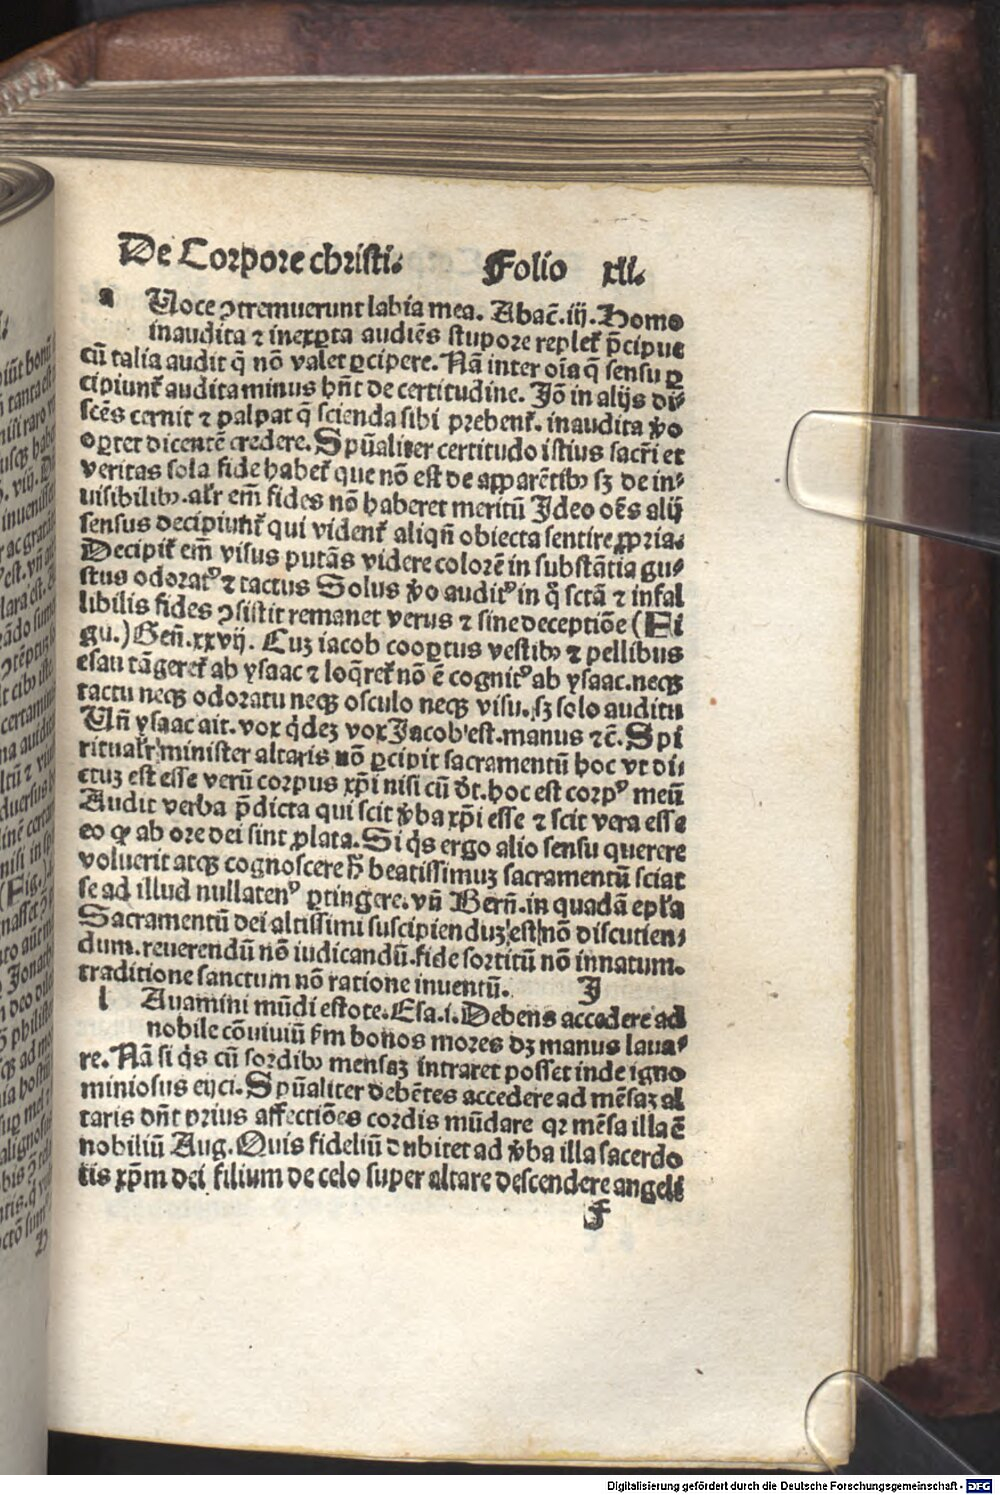 De Corpore christi. Folio xli.
a Uoce ꝯtremuerunt labia mea. Abac̄. iij. Homo
inaudita ⁊ inexꝑta audiēs stupore repletʳ p̄cipue
cū talia audit q̄ nō valet ꝑcipere. Nā inter oīa q̄ sensu ꝑ
cipiuntʳ audita minus hn̄t de certitudine. Jō in alijs di⸗
scēs cernit ⁊ palpat q̄ scienda sibi prebentʳ. inaudita ꝟo
oꝑtet dicentē credere. Spūaliter certitudo istius sacr̄i et
veritas sola fide habetʳ que nō est de apparētibꝰ sꝫ de in⸗
uisibilibꝰ. alr̄ em̄ fides nō haberet meritū Jdeo oēs alij
sensus decipiuntʳ qui videntʳ aliqn̄ obiecta sentire ꝓpria.
Decipitʳ em̄ visus putās videre colorē in substātia gu⸗
stus odoratꝰ ⁊ tactus Solus ꝟo auditꝰ in q̄ sctā ⁊ infal
libilis fides ꝯsistit remanet verus ⁊ sine deceptiōe (Fi
gu.) Gen̄. xxvij. Cuꝫ iacob cooꝑtus vestibꝰ ⁊ pellibus
esau tāgeretʳ ab ysaac ⁊ loq̄retʳ nō ē cognitꝰ ab ysaac. neqꝫ
tactu neqꝫ odoratu neqꝫ osculo neqꝫ visu. sꝫ solo auditu
Un̄ ysaac ait. vox q̇deꝫ vox Jacob est. manus ⁊c̄. Spi
ritualr̄ minister altaris nō ꝑcipit sacramentū hoc vt di⸗
ctuꝫ est esse verū corpus xp̄i nisi cū dr̄. hoc est corpꝰ meū
Audit verba p̄dicta qui scit ꝟba xp̄i esse ⁊ scit vera esse
eo ꝙ ab ore dei sint ꝓlata. Si q̇s ergo alio sensu querere
voluerit atqꝫ cognoscere h̄ beatissimuꝫ sacramentū sciat
se ad illud nullatenꝰ ꝑtingere. vn̄ Bern̄. in quadā epl̄a
Sacramentū dei altissimi suscipienduꝫ est nō discutien⸗
dum. reuerendū nō iudicandū. fide sortitū nō innatum.
traditione sanctum nō ratione inuentū. J
l Auamini mūdi estote. Esa. i. Debens accedere ad
nobile cōuiuiū ẜm bonos mores dꝫ manus laua⸗
re. Nā si q̇s cū sordibꝰ mensaꝫ intraret posset inde igno
miniosus eijci. Spūaliter debētes accedere ad mēsaꝫ al
taris dn̄t prius affectiōes cordis mūdare qꝛ mēsa illa ē
nobiliū Aug. Quis fideliū dubitet ad ꝟba illa sacerdo
tis xp̄m dei filium de celo super altare descendere angeli
f